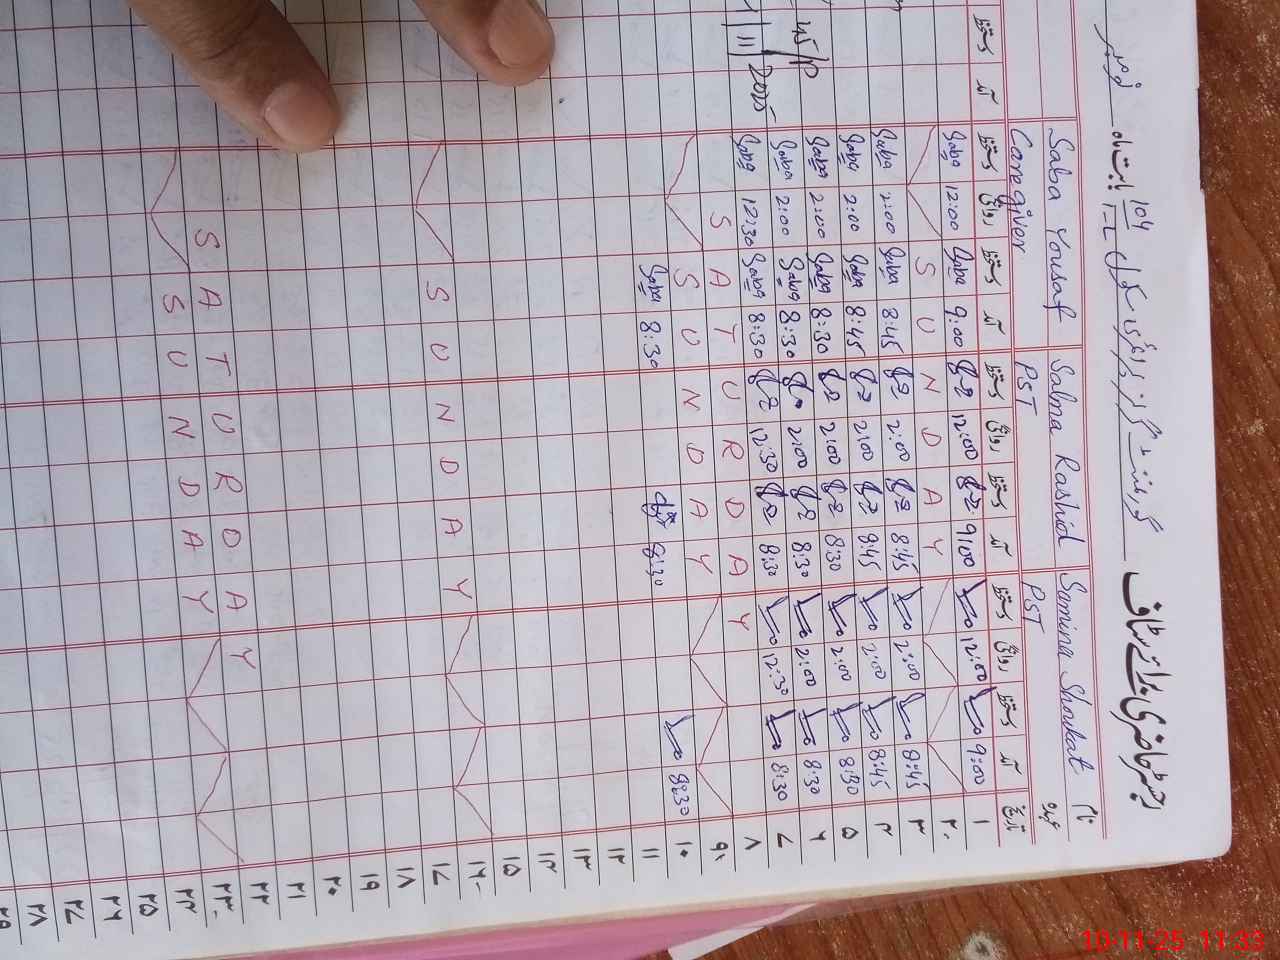 رجسٹر حاضری برائے سٹاف گورنمنٹ گرلز پرائمری سکول 104 بابت ماہ نومبر
Saba Yousaf Salma Rashid Samina Shoukat نام
Caregiver PST PST عہدہ
دستخط آمد دستخط روانگی دستخط آمد دستخط روانگی دستخط آمد دستخط روانگی دستخط آمد تاریخ
Saba 12:00 Saba 9:00 12:00 9:00 12:00 9:00 ۱
SUNDAY ۲
Saba 2:00 Saba 8:45 2:00 8:45 2:00 8:45 ۳
Saba 2:00 Saba 8:45 2:00 8:45 2:00 8:45 ۴
Saba 2:00 Saba 8:30 2:00 8:30 2:00 8:30 ۵
Saba 2:00 Saba 8:30 2:00 8:30 2:00 8:30 ۶
11 2025 Saba 12:30 Saba 8:30 12:30 8:30 12:30 8:30 ۷
SATURDAY ۸
SUNDAY ۹
Saba 8:30 8:30 8:30 ۱۰
۱۱
۱۲
۱۳
۱۴
۱۵
SUNDAY ۱۶
۱۷
۱۸
۱۹
۲۰
۲۱
SATURDAY ۲۲
SUNDAY ۲۳
۲۴
۲۵
۲۶
۲۷
۲۸
۲۹
10-11-25 11:33